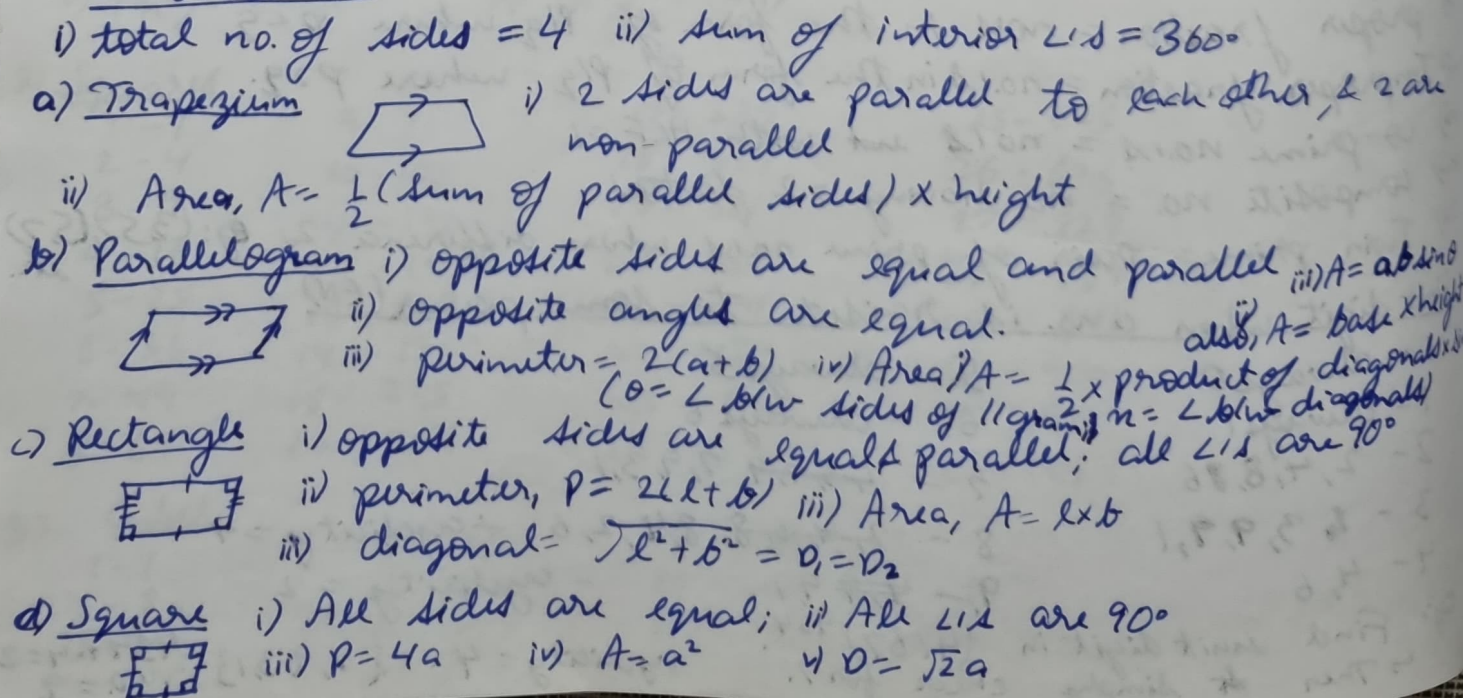 i) total no. of sides = 4 ii) sum of interior ∠'s = 360°
a) Trapezium i) 2 sides are parallel to each other, & 2 are
non-parallel
ii) Area, A = 1/2 (sum of parallel sides) × height
b) Parallelogram i) opposite sides are equal and parallel iii) A = ab sinθ
ii) opposite angles are equal. also, ii) A = base × height
iii) perimeter = 2(a+b) iv) Area i) A = 1/2 × product of diagonals ×
(θ = ∠ b/w sides of ||gram; x = ∠ b/w diagonals)
c) Rectangle i) opposite sides are equal & parallel; all ∠'s are 90°
ii) perimeter, P = 2(l+b) iii) Area, A = l×b
iii) diagonal = √l²+b² = D₁ = D₂
d) Square i) All sides are equal; ii) All ∠'s are 90°
iii) P = 4a iv) A = a² v) D = √2 a